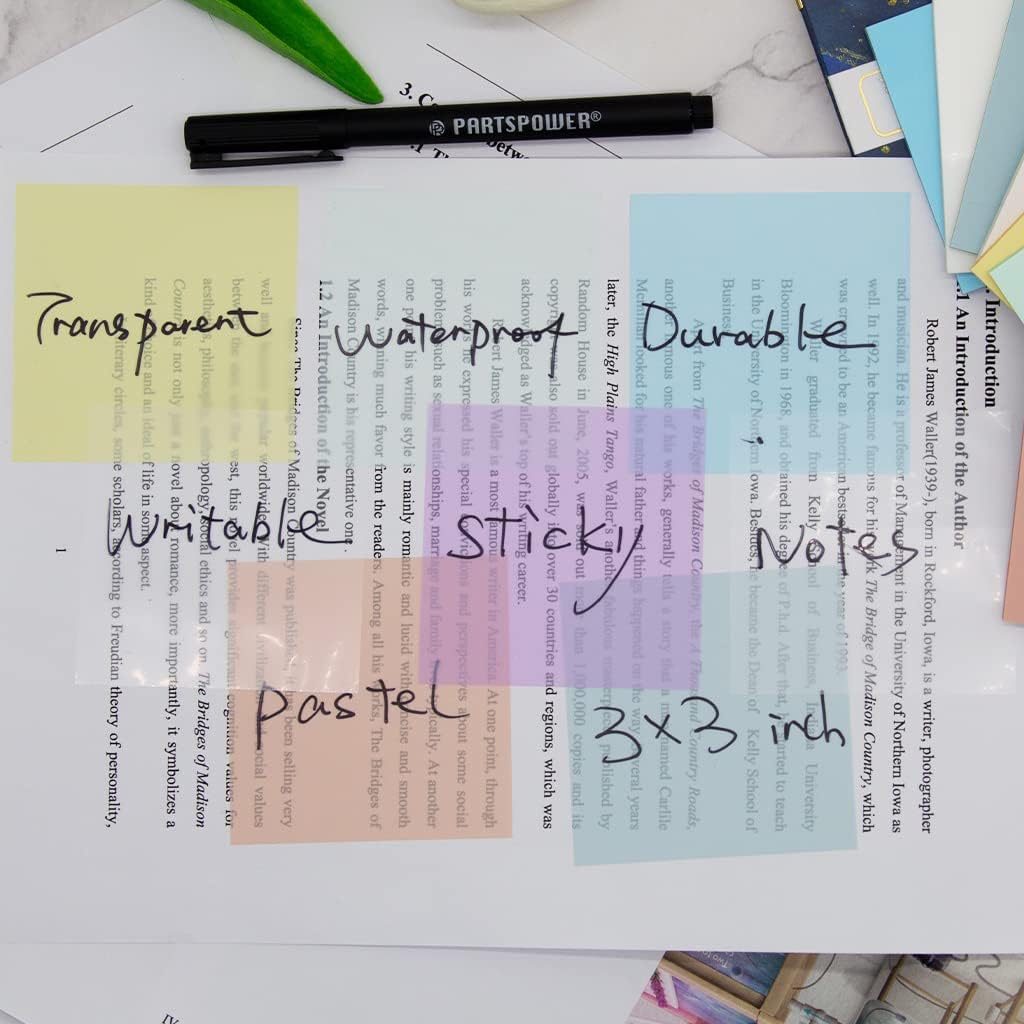 3. C
betw
.1 T
PARTSPOWER®
Transparent
Waterproof
Durable
Writable
Sticky
Notes
Pastel
3x3 inch
Introduction
.1 An Introduction of the Author
Robert James Waller(1939-), born in Rockford, Iowa, is a writer, photographer
and musician. He is a professor of Management in the University of Northern Iowa as
well. In 1992, he became famous for his work The Bridge of Madison Country, which
was to be an American in the year of 1993.
Waller graduated from Kelly School of Business, Indiana University
Bloomington in 1968, and obrained his degree of P.h.d. After that, started to teach
in the University of Northern Iowa. Besides, he became the Dean of Kelly School of
Business.
Apart from The Bridges of Madison Country, the A Thousand Country Roads,
another famous one of his works, generally tells a story that a man named Carlile
McMillan looked for his natural father and things happened on the way several years
later, the High Plains Tango, Waller's another fabulous published by
Random House in June, 2005, was sold out more than 1,000,000 copies and its
copyright was also sold out globally into over 30 countries and regions, which was
acknowledged as Waller's top of his writing career.
Robert James Waller is a most famous writer in America. At one point, through
his works, he expressed his special and perspectives about some social
problems such as sexual relationships, marriage and family typically. At another
one point, his writing style is mainly romantic and lucid with concise and smooth
words, winning much favor from the readers. Among all his works, The Bridges of
Madison Country is his representative one.
1.2 An Introduction of the Novel
Since The Bridges of Madison Country was published, it has been selling very
well worldwide. With different social values
between the west, this novel provides significant cognition values for
aesthetics, anthropology, social ethics and so on. The Bridges of Madison
Country is not only just a novel about romance, more importantly, it symbolizes a
kind of voice and an ideal of life in some aspect.
literary circles, some scholars, according to Freudian theory of personality,
1
IV